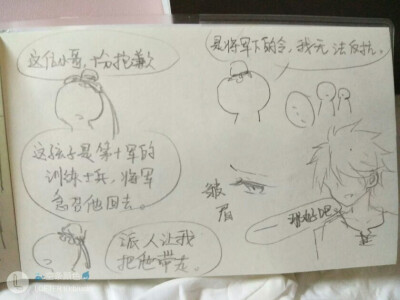 这位小哥，十分抱歉
是将军下的令，我无法反抗。
这孩子是第十军的
训练士兵，将军
急召他回去。
皱
眉
派人让我
把他带走。